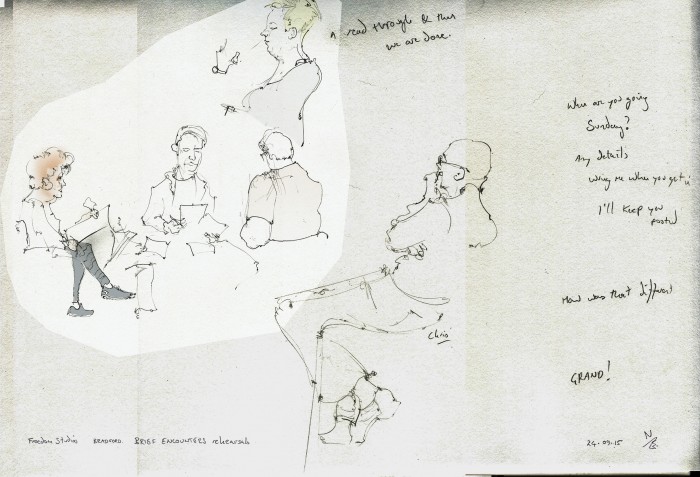 A read through & then
we are done.
Where are you going
Sunday?
Any details
wing me when you get it
I'll keep you
posted
How was that different
GRAND!
Chris
Freedom Studios BRADFORD. BRIEF ENCOUNTERS rehearsals
24.09.15